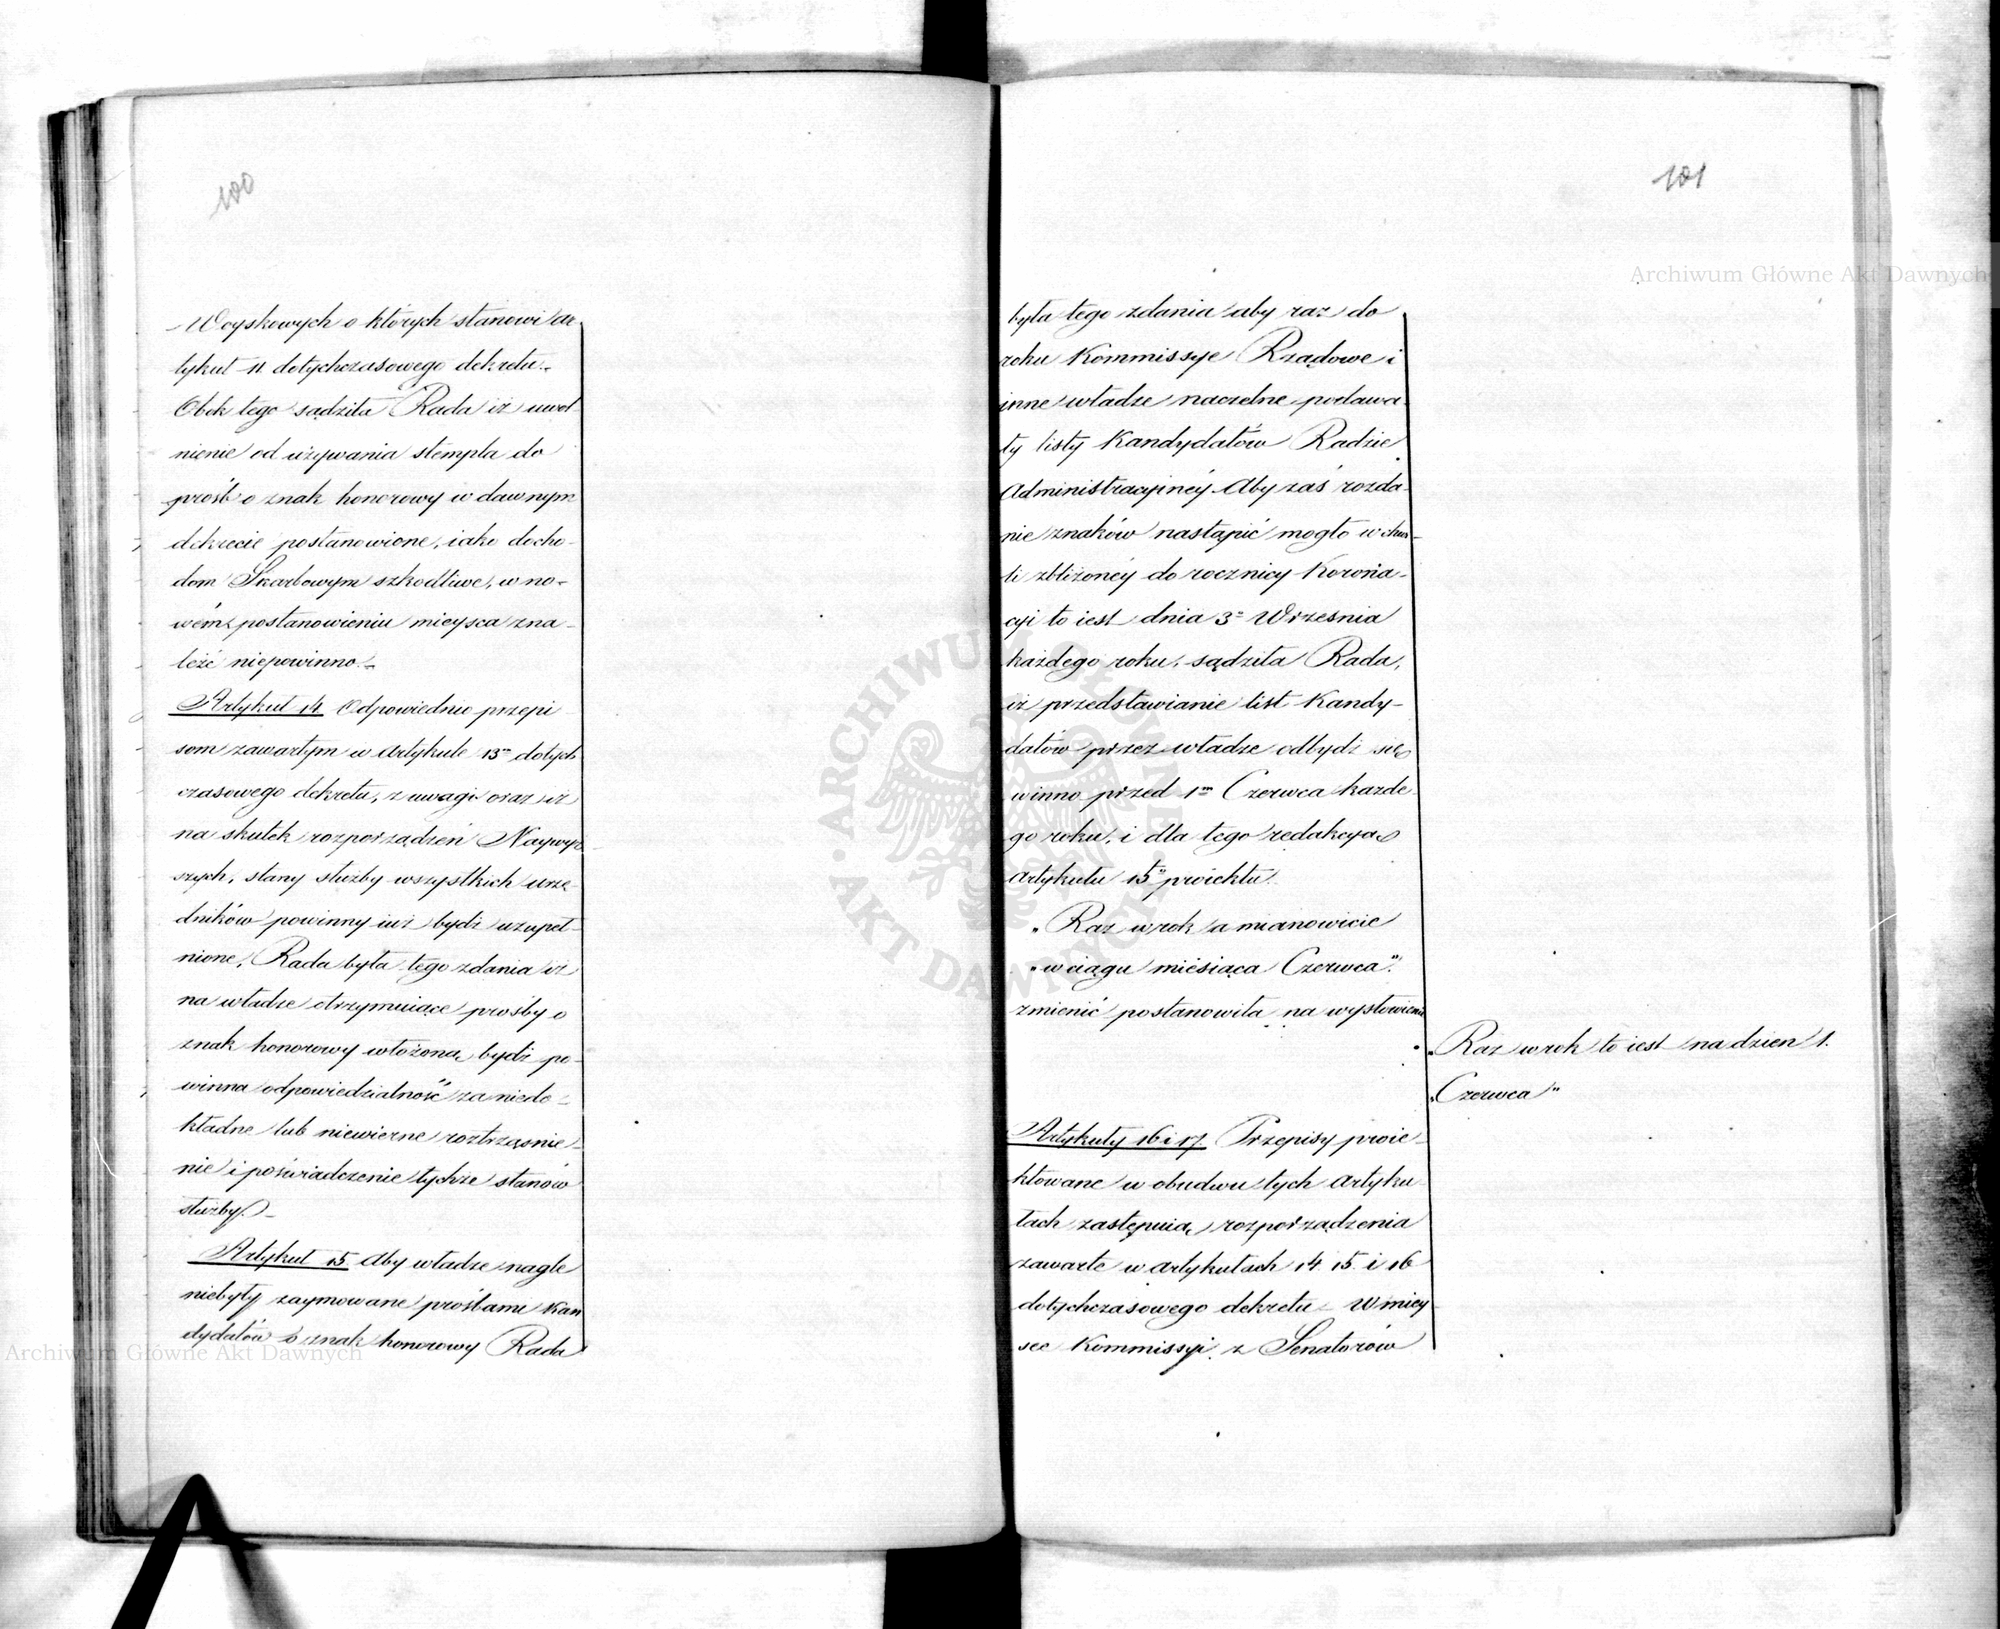 100
Woyskowych o których stanowi Ar
tykuł 11 dotychczasowego dekretu.-
Obok tego sądziła Rada iż uwol-
nienie od używania stempla do
prośb o znak honorowy w dawnym
dekrecie postanowione, iako docho-
dom Skarbowym szkodliwe, w no-
wém postanowieniu mieysca zna-
leźć niepowinno.-
Artykuł 14. Odpowiednio przepi
som zawartym w Artykule 13m dotych
czasowego dekretu, z uwagi oraz iż
na skutek rozporządzeń Naywyż
szych, stany służby wszystkich urzę-
dników powinny iuż bydź uzupeł-
nione, Rada była tego zdania iż
na władze otrzymuiące prośby o
znak honorowy włożoną bydź po-
winna odpowiedzialność za niedo-
kładne lub niewierne roztrząśnie-
nie i poświadczenie tychże stanów
służby.-
Artykuł 15. Aby władze nagle
niebyły zaymowane prośbami Kan
dydatów o znak honorowy Rada
101
była tego zdania aby raz do
roku Kommissye Rządowe i
inne władze naczelne podawa-
ły listy Kandydatów Radzie
Administracyinéy. Aby zaś rozda-
nie znaków nastąpić mogło w chwi-
li zbliżonéy do rocznicy Korona-
cyi to iest dnia 3o Września
każdego roku, sądziła Rada,
iż przedstawianie list Kandy-
datów przez władze odbydź się
winno przed 1m Czerwca każde-
go roku, i dla tego redakcyą
Artykułu 15o proiektu.
„Raz w rok a mianowicie
„w ciągu miésiąca Czerwca".
zmienić postanowiła na wysłowienie
„Raz w rok to iest na dzien 1.
„Czerwca"
Artykuły 16 i 17. Przepisy proie-
ktowane w obudwu tych Artyku-
łach zastępuią rozporządzenia
zawarte w Artykułach 14. 15. i 16
dotychczasowego dekretu - W miey-
sce Kommissyi z Senatorów
Archiwum Główne Akt Dawnych
Archiwum Główne Akt Dawnych
ARCHIWUM GŁÓWNE • AKT DAWNYCH •